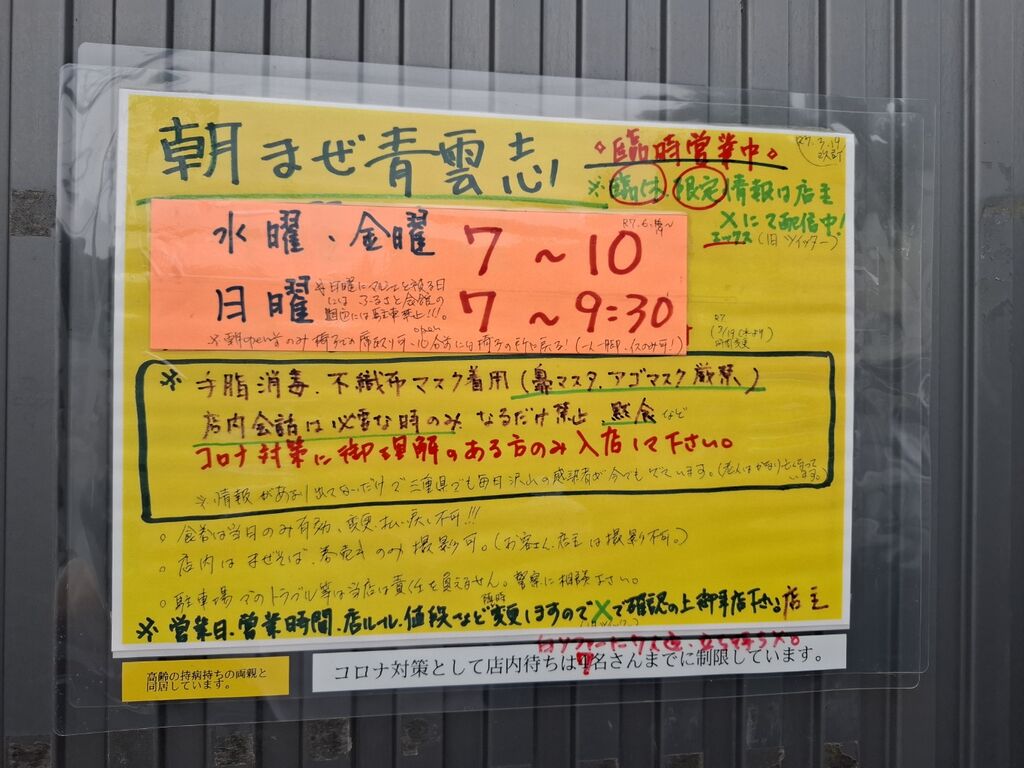 朝まぜ青雲志
◇臨時営業中◇
R7.3.19改訂
※臨休、限定情報は店主
Xにて配信中!
エックス(旧ツイッター)
水曜、金曜 7~10
日曜 7~9:30
※日曜にマルシェと被る日
には ふるさと会館の
敷地内には駐車禁止!!!。
※手指消毒、不織布マスク着用(鼻マスク、アゴマスク厳禁)
店内会話は必要な時のみ なるだけ禁止、黙食など
コロナ対策に御理解のある方のみ入店して下さい。
※情報があまり出てないだけで三重県でも毎日沢山の感染者が今でもでています。
。食券は当日のみ有効、変更、払い戻し不可!!!
。店内はまぜそば、券売機のみ撮影可。(お客さん、店主は撮影不可。)
。駐車場でのトラブル等は当店は責任を負えません。警察に相談下さい。
※営業日、営業時間、店ルール、値段など臨時変更しますのでXで確認の上御来店下さい 店主
高齢の持病持ちの両親と
同居しています。
コロナ対策として店内待ちは7名さんまでに制限しています。